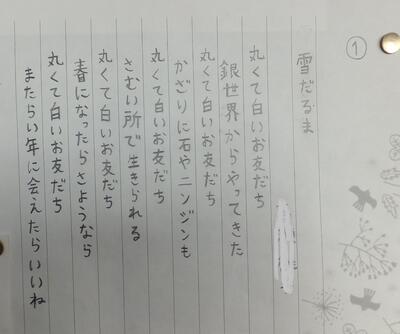 ①
雪だるま
丸くて白いお友だち
銀世界からやってきた
丸くて白いお友だち
かざりに石やニンジンも
丸くて白いお友だち
さむい所で生きられる
丸くて白いお友だち
春になったらさようなら
丸くて白いお友だち
またらい年に会えたらいいね